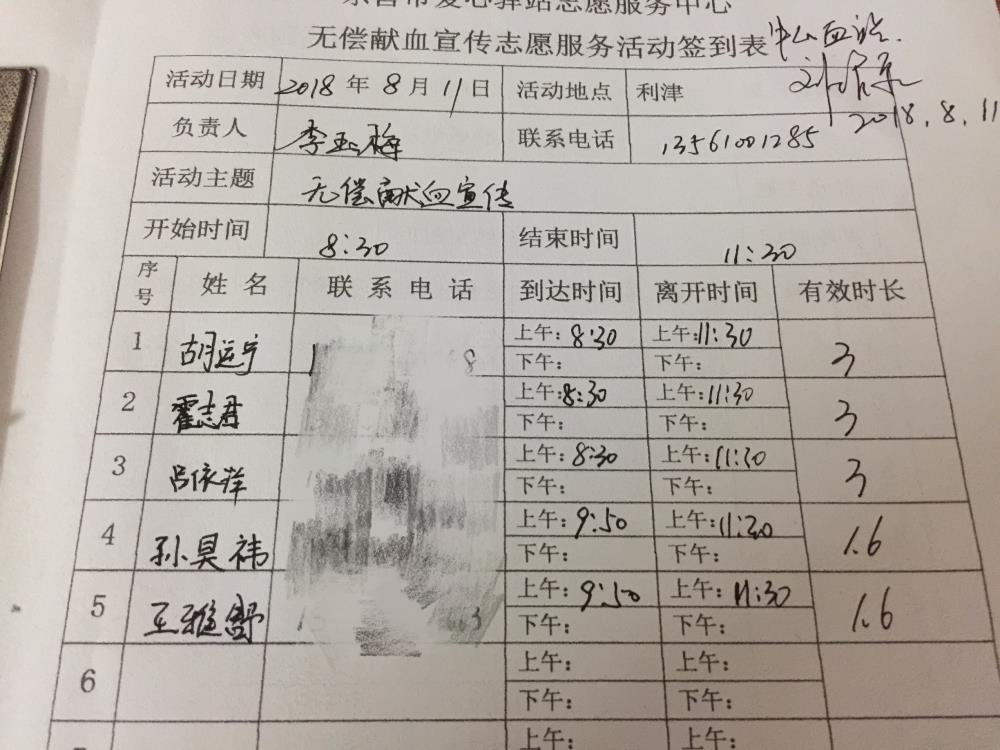 东营市爱心驿站志愿服务中心
无偿献血宣传志愿服务活动签到表
血站.
2018.8.11
活动日期 2018年8月11日 活动地点 利津
负责人 李玉梅 联系电话 13561001285
活动主题 无偿献血宣传
开始时间 8:30 结束时间 11:30
序号 姓名 联系电话 到达时间 离开时间 有效时长
1 胡运宁 上午:8:30 上午:11:30 3
下午: 下午:
2 霍志君 上午:8:30 上午:11:30 3
下午: 下午:
3 吕依萍 上午:8:30 上午:11:30 3
下午: 下午:
4 孙昊祎 上午:9:50 上午:11:30 1.6
下午: 下午:
5 王雅舒 上午:9:50 上午:11:30 1.6
下午: 下午:
6 上午: 上午:
下午: 下午:
上午: 上午: